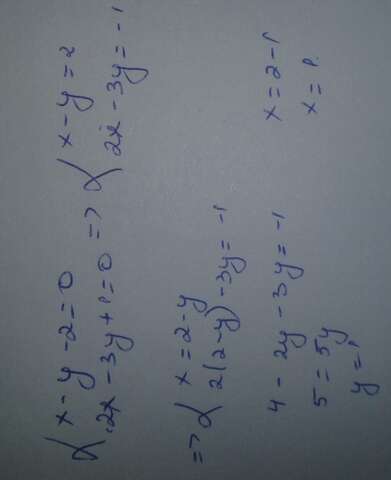 { x - y - 2 = 0
2x - 3y + 1 = 0 => { x - y = 2
2x - 3y = -1
=> { x = 2 - y
2(2 - y) - 3y = -1
4 - 2y - 3y = -1
5 = 5y
y = 1
x = 2 - 1
x = 1